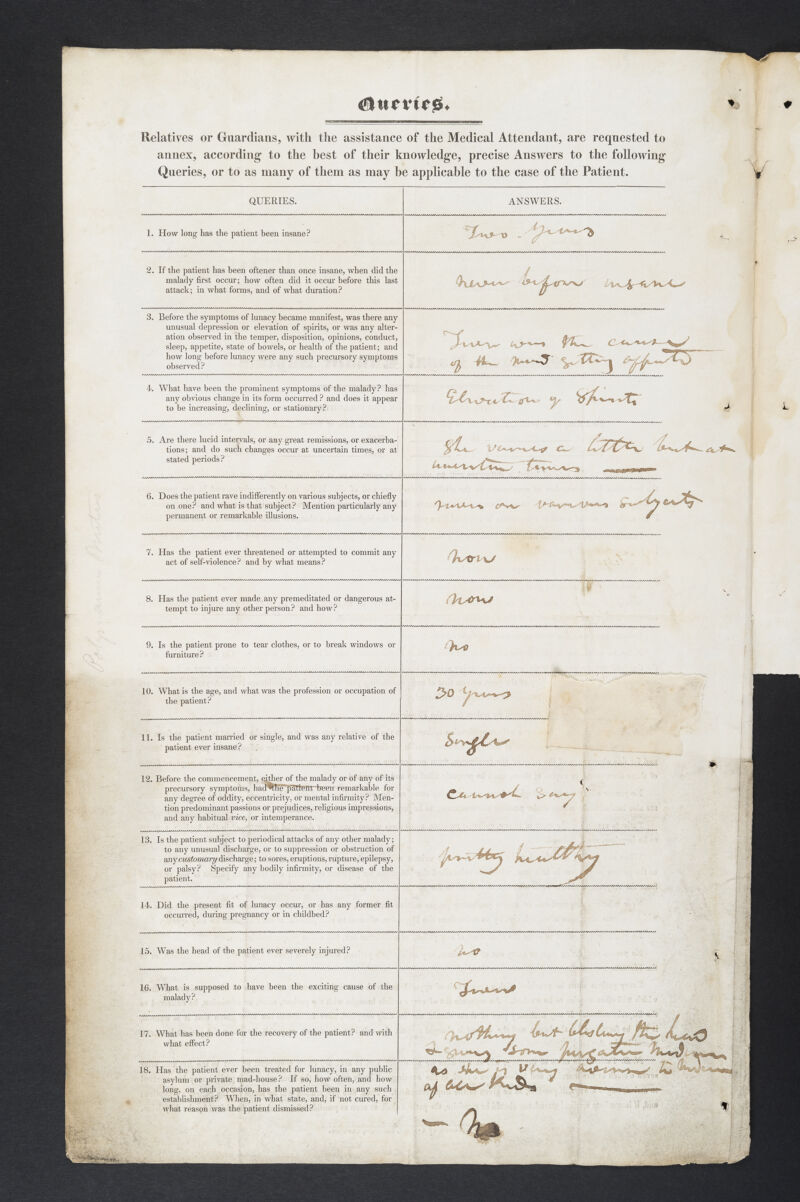 Queries.
Relatives or Guardians, with the assistance of the Medical Attendant, are requested to
annex, according to the best of their knowledge, precise Answers to the following
Queries, or to as many of them as may be applicable to the case of the Patient.
QUERIES.
ANSWERS.
1. How long has the patient been insane?
Two Years
2. If the patient has been oftener than once insane, when did the
malady first occur; how often did it occur before this last
attack; in what forms, and of what duration?
never before insane
3. Before the symptoms of lunacy became manifest, was there any
unusual depression or elevation of spirits, or was any alter-
ation observed in the temper, disposition, opinions, conduct,
sleep, appetite, state of bowels, or health of the patient; and
how long before lunacy were any such precursory symptoms
observed?
was the cause
of the mind getting affected
4. What have been the prominent symptoms of the malady? has
any obvious change in its form occurred? and does it appear
to be increasing, declining, or stationary?
Elevation of Spirits
5. Are there lucid intervals, or any great remissions, or exacerba-
tions; and do such changes occur at uncertain times, or at
stated periods?
She varies a little but at
uncertain times
6. Does the patient rave indifferently on various subjects, or chiefly
on one? and what is that subject? Mention particularly any
permanent or remarkable illusions.
raves on various subjects
7. Has the patient ever threatened or attempted to commit any
act of self-violence? and by what means?
None
8. Has the patient ever made any premeditated or dangerous at-
tempt to injure any other person? and how?
None
9. Is the patient prone to tear clothes, or to break windows or
furniture?
No
10. What is the age, and what was the profession or occupation of
the patient?
30 years
11. Is the patient married or single, and was any relative of the
patient ever insane?
Single
12. Before the commencement, either of the malady or of any of its
precursory symptoms, had the patient been remarkable for
any degree of oddity, eccentricity, or mental infirmity? Men-
tion predominant passions or prejudices, religious impressions,
and any habitual vice, or intemperance.
Cannot say
13. Is the patient subject to periodical attacks of any other malady;
to any unusual discharge, or to suppression or obstruction of
any customary discharge; to sores, eruptions, rupture, epilepsy,
or palsy? Specify any bodily infirmity, or disease of the
patient.
pretty healthy
14. Did the present fit of lunacy occur, or has any former fit
occurred, during pregnancy or in childbed?
15. Was the head of the patient ever severely injured?
no
16. What is supposed to have been the exciting cause of the
malady?
17. What has been done for the recovery of the patient? and with
what effect?
nothing but blistering the head
& giving some purgative medicine
18. Has the patient ever been treated for lunacy, in any public
asylum or private mad-house? If so, how often, and how
long, on each occasion, has the patient been in any such
establishment? When, in what state, and, if not cured, for
what reason was the patient dismissed?
as she is very averse to medicine
of all kinds
— No